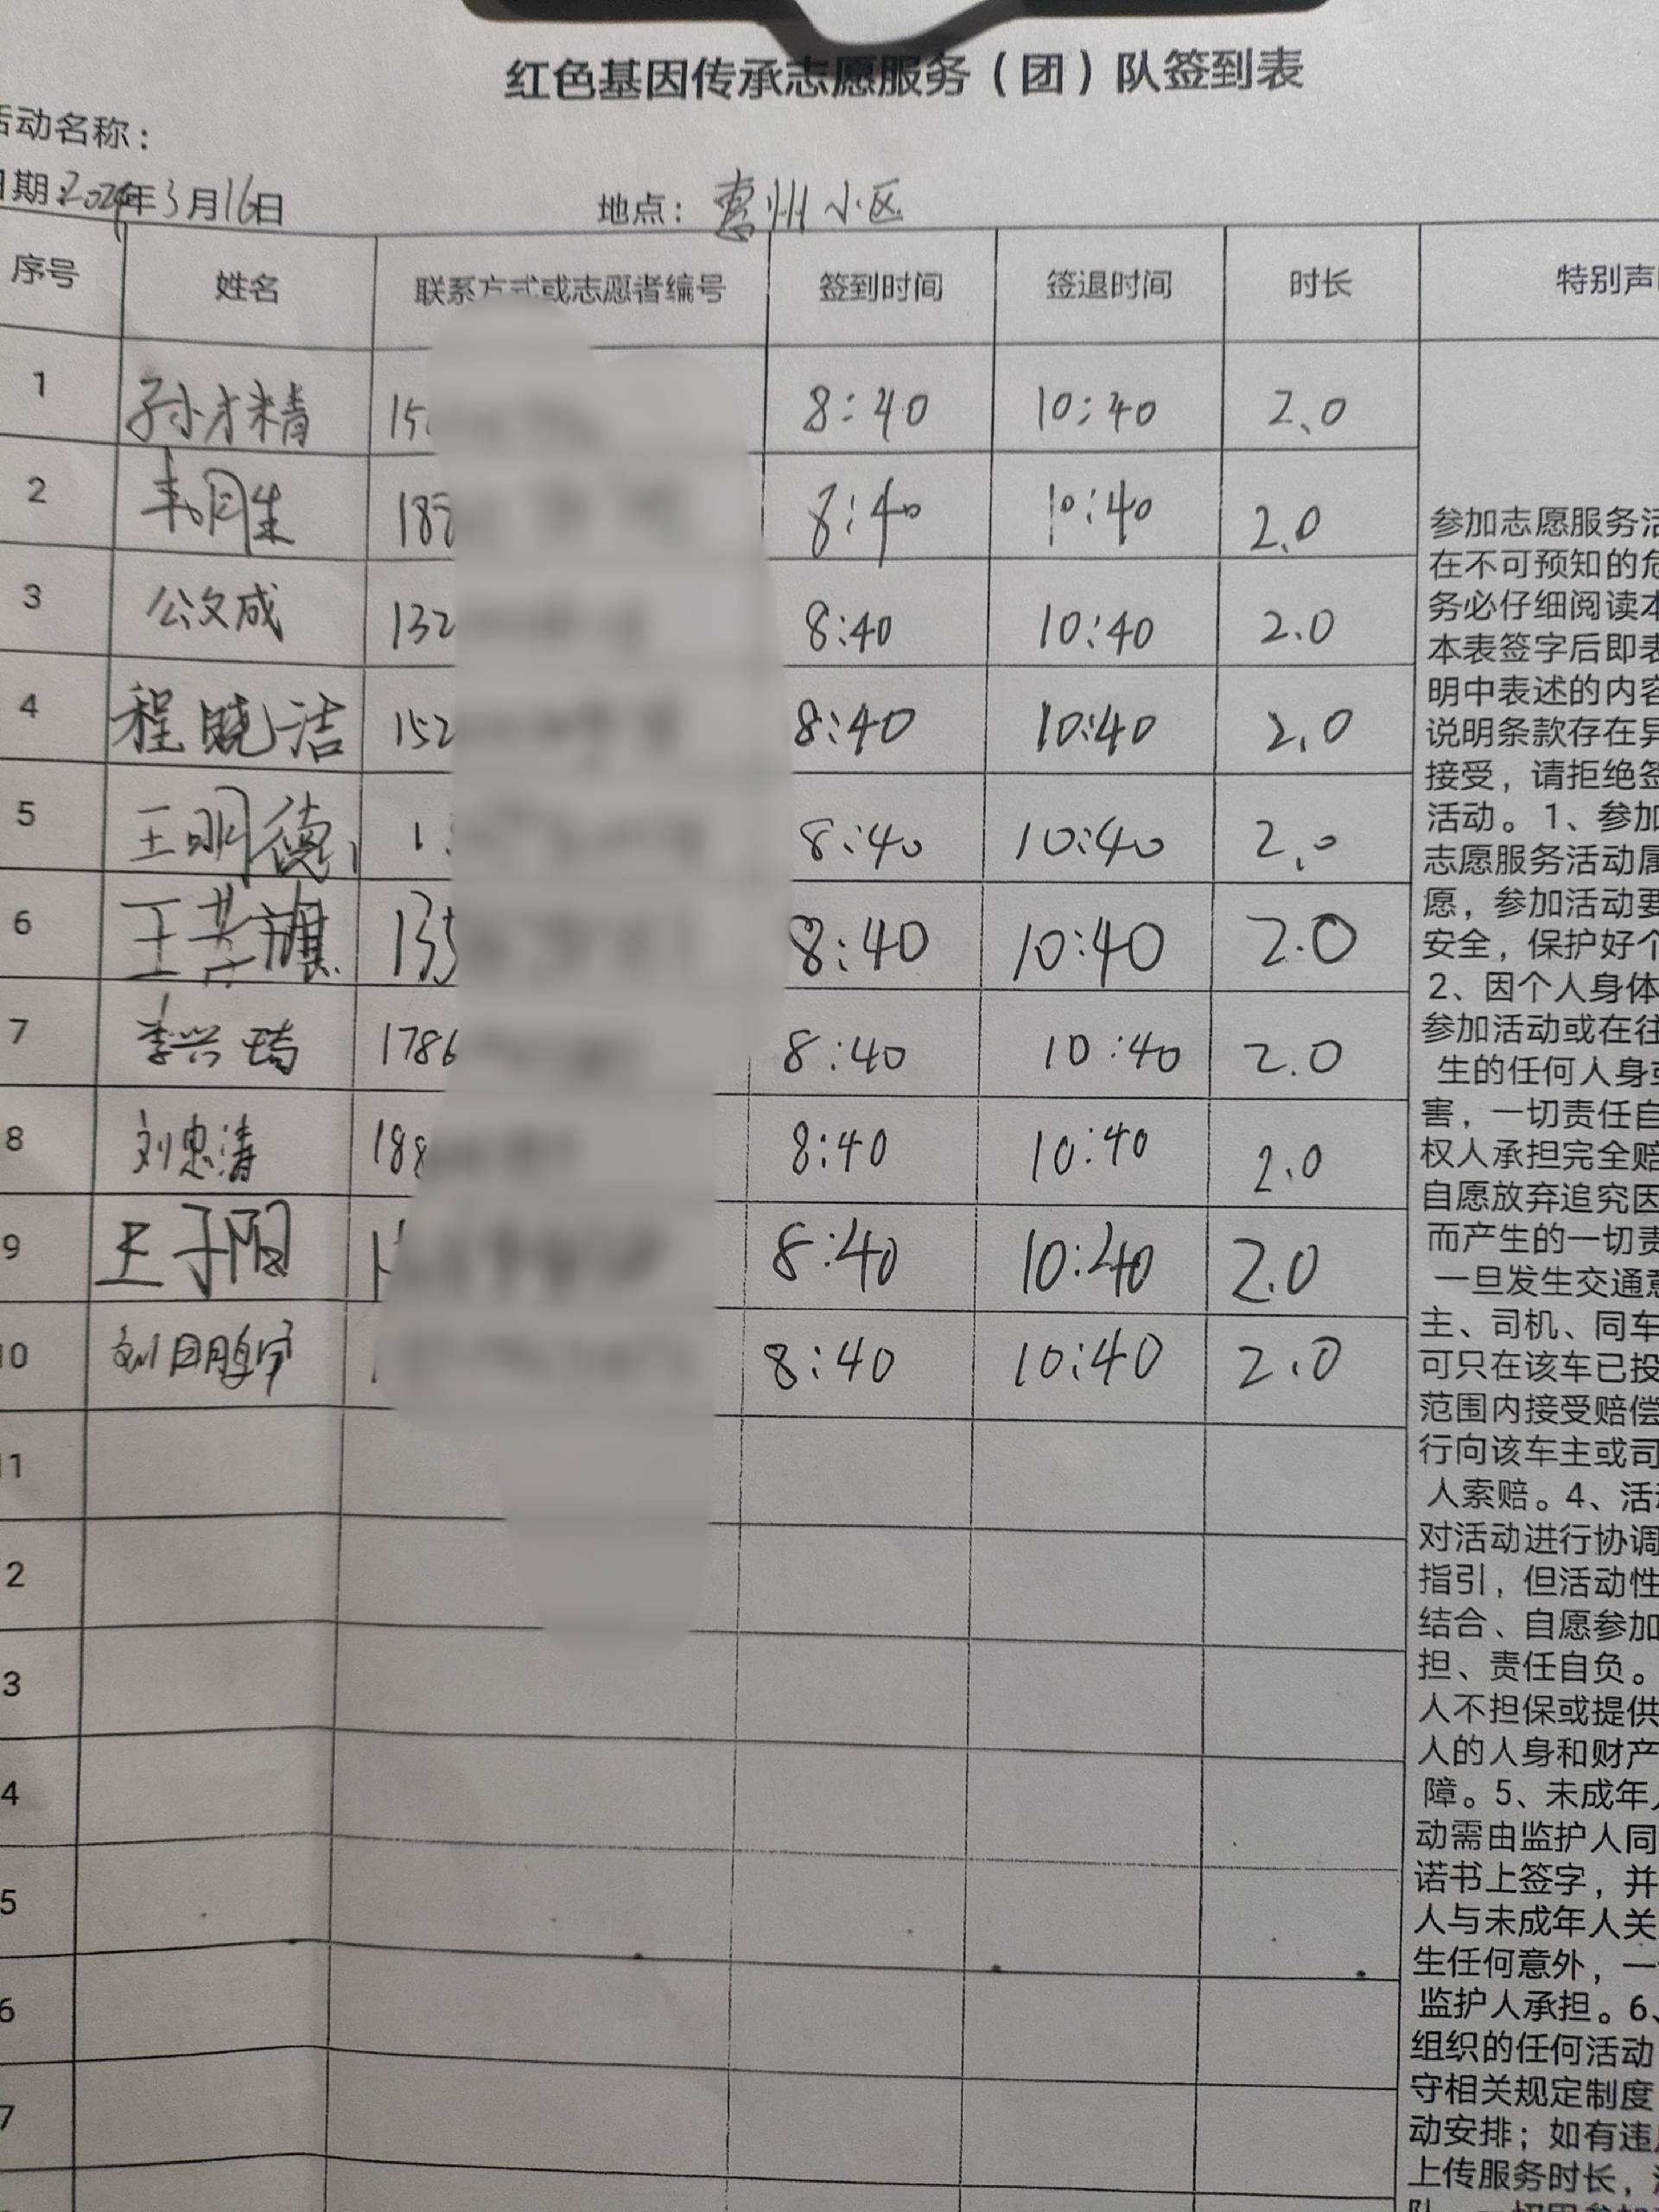 红色基因传承志愿服务（团）队签到表
活动名称：
日期：2024年3月16日 地点：惠州小区
序号 姓名 联系方式或志愿者编号 签到时间 签退时间 时长 特别声
1 孙才精 15 8:40 10:40 2.0
2 韦同生 18 8:40 10:40 2.0
3 公文成 132 8:40 10:40 2.0
4 程晓洁 152 8:40 10:40 2.0
5 王明德 1 8:40 10:40 2.0
6 王芸旗 135 8:40 10:40 2.0
7 李兴琦 1786 8:40 10:40 2.0
8 刘忠涛 188 8:40 10:40 2.0
9 王子阳 1 8:40 10:40 2.0
10 刘 8:40 10:40 2.0
11
2
3
4
5
6
7
参加志愿服务活
在不可预知的危
务必仔细阅读本
本表签字后即表
明中表述的内容
说明条款存在异
接受，请拒绝签
活动。1、参加
志愿服务活动属
愿，参加活动要
安全，保护好个
2、因个人身体
参加活动或在往
生的任何人身或
害，一切责任自
权人承担完全赔
自愿放弃追究因
而产生的一切责
一旦发生交通意
主、司机、同车
可只在该车已投
范围内接受赔偿
行向该车主或司
人索赔。4、活动
对活动进行协调
指引，但活动性
结合、自愿参加
担、责任自负。
人不担保或提供
人的人身和财产
障。5、未成年人
动需由监护人同
诺书上签字，并
人与未成年人关
生任何意外，一
监护人承担。6、
组织的任何活动
守相关规定制度
动安排；如有违
上传服务时长，